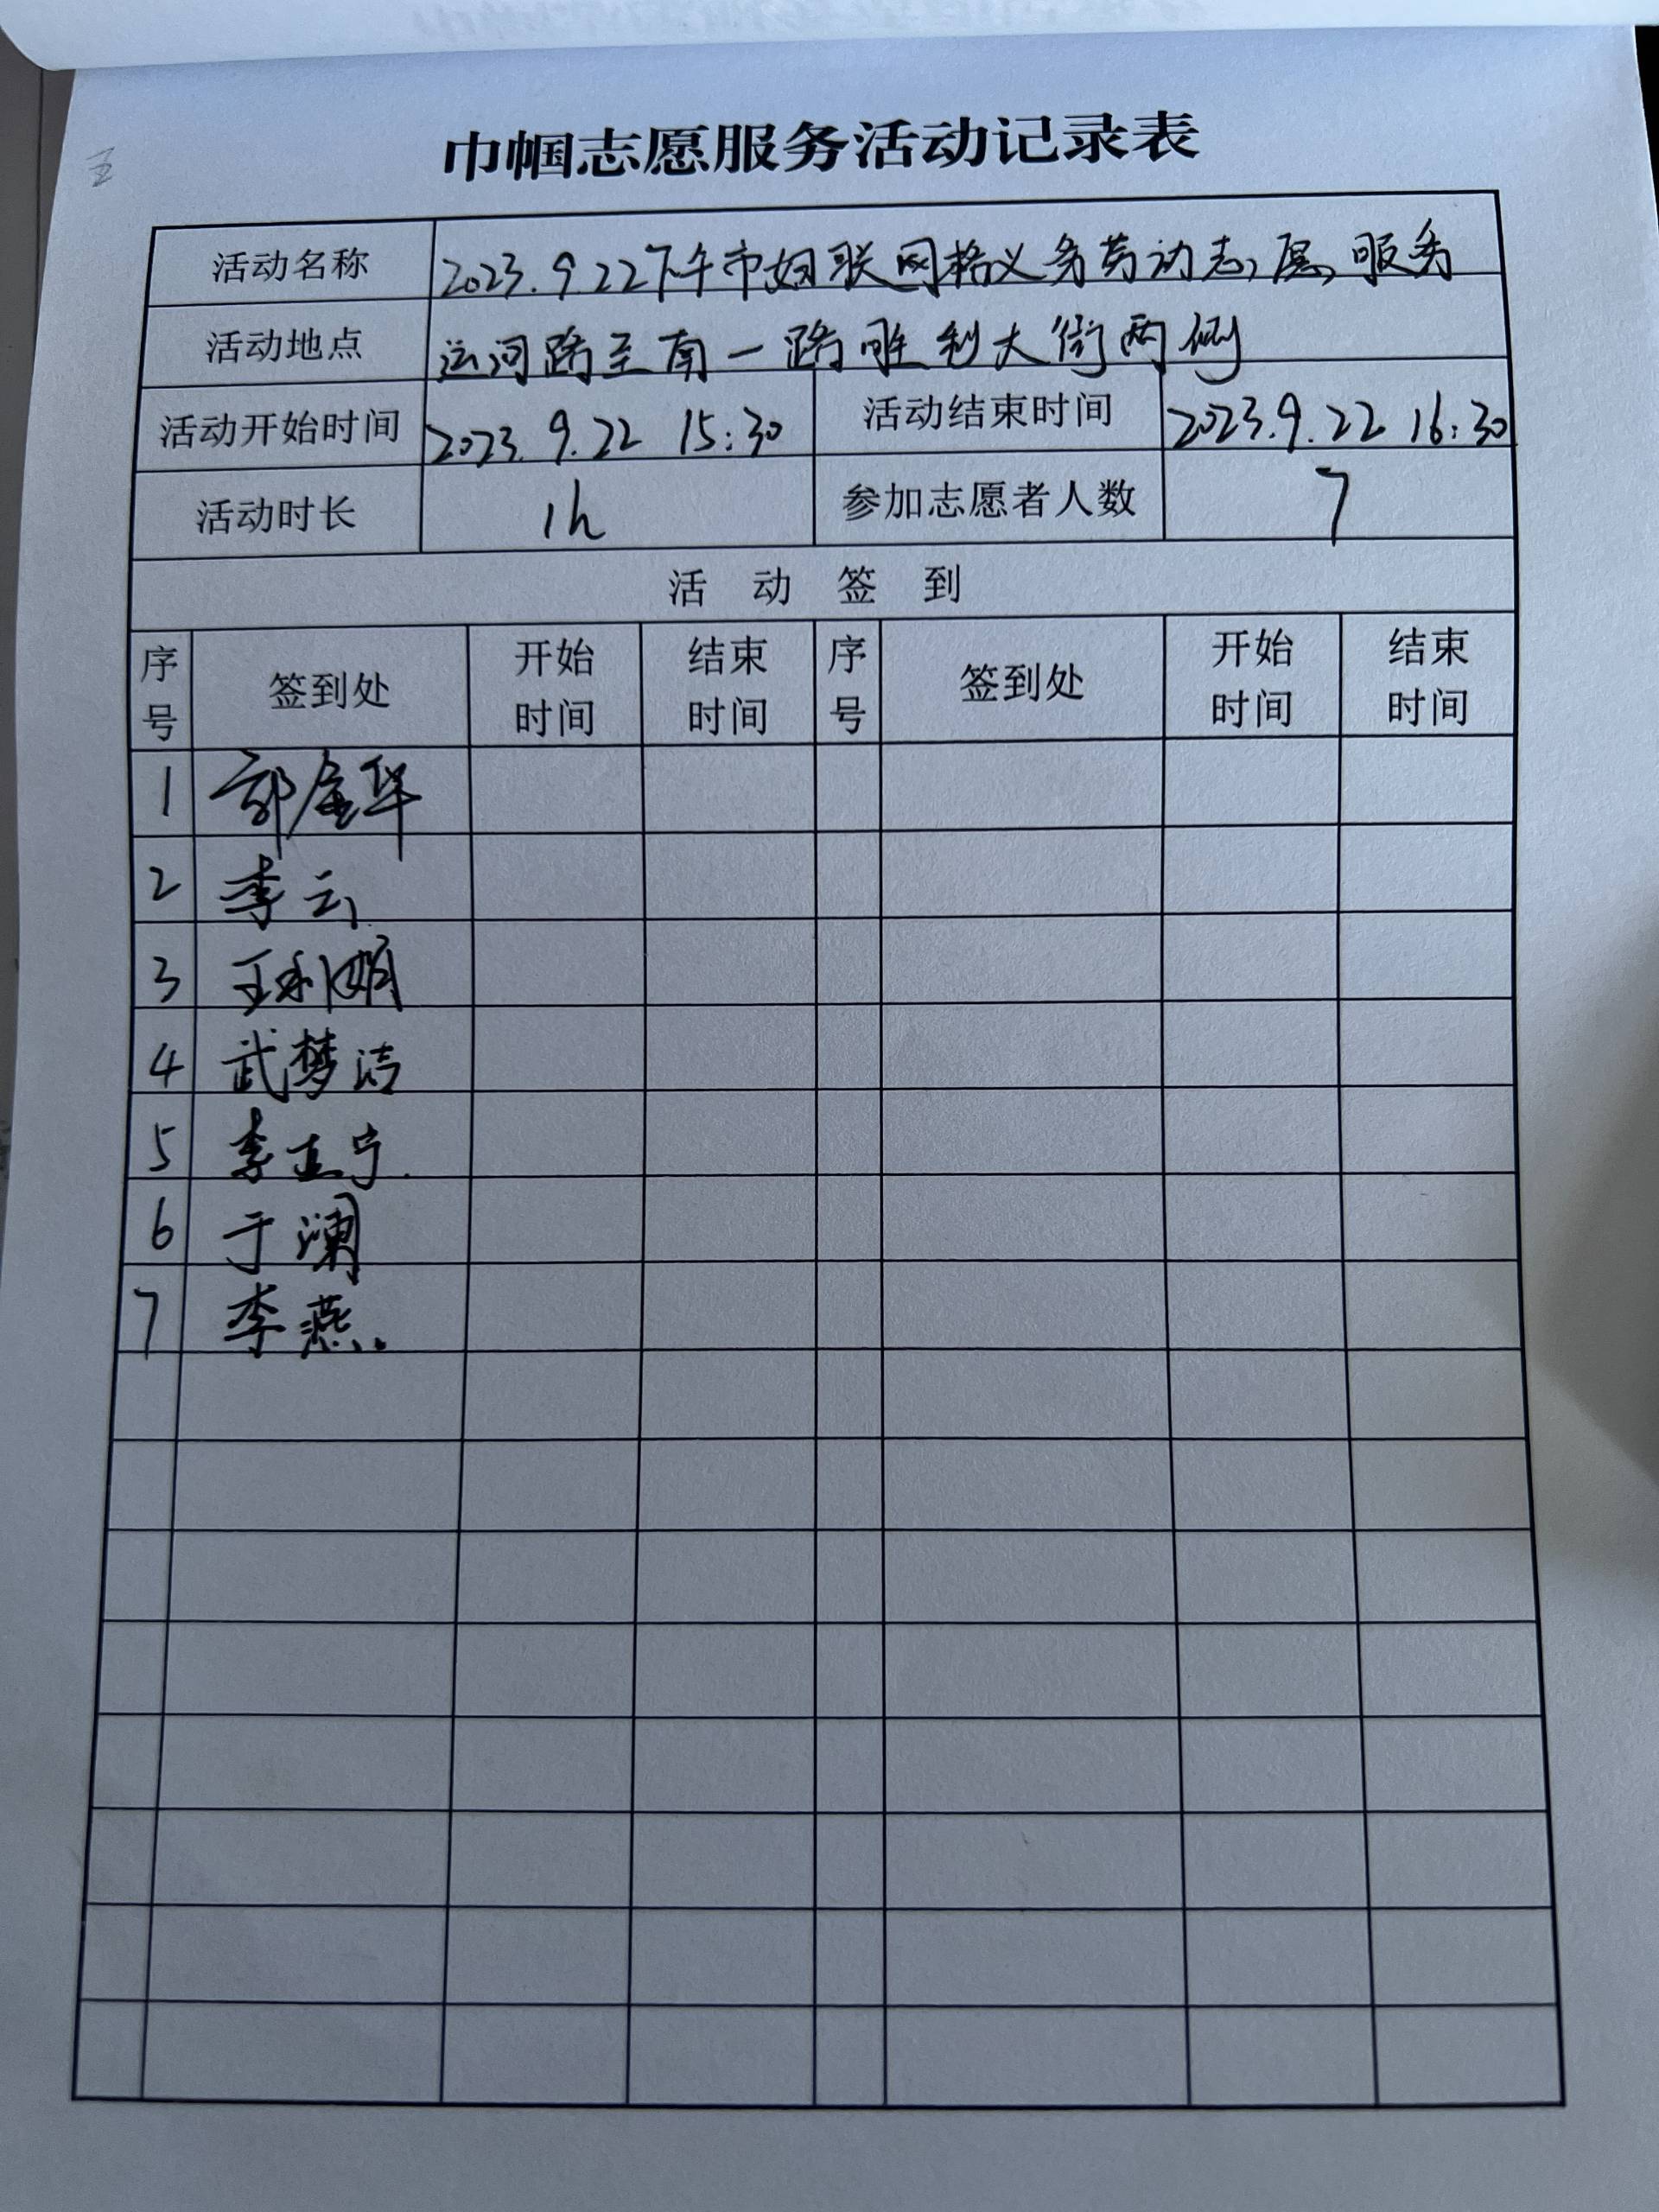 巾帼志愿服务活动记录表
活动名称 2023.9.22下午市妇联网格义务劳动志愿服务
活动地点 运河路至南一路胜利大街两侧
活动开始时间 2023.9.22 15:30 活动结束时间 2023.9.22 16:30
活动时长 1h 参加志愿者人数 7
活动签到
序号 签到处 开始时间 结束时间 序号 签到处 开始时间 结束时间
1 郭金华
2 李云
3 王利娟
4 武梦洁
5 李正宁
6 于澜
7 李燕